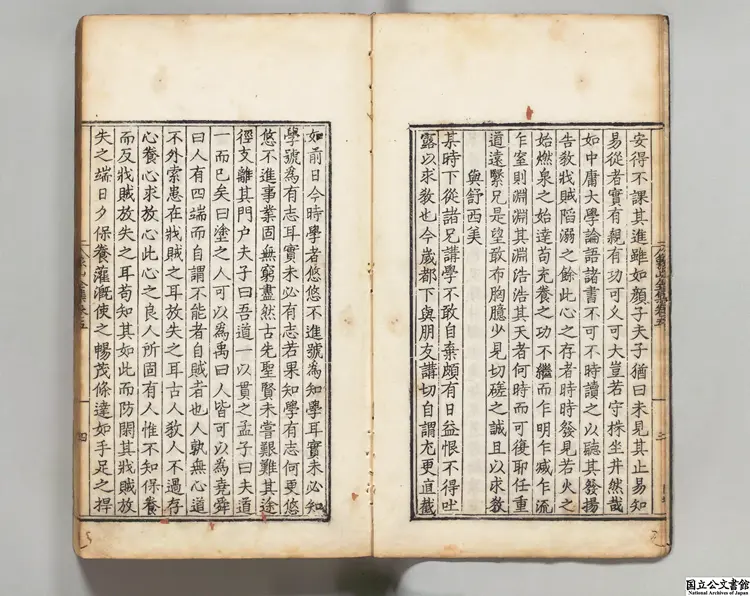 安得不課其進雖如顔子夫子猶曰未見其止易知
易從者實有親有功可乆可大豈若守株坐井然哉
如中庸大學論語諸書不可不時讀之以聽其發揚
告教戕賊陷溺之餘此心之存者時時發見若火之
始燃泉之始達苟充養之功不繼而乍明乍滅乍流
乍窒則淵淵其淵浩浩其天者何時而可復耶任重
道遠繄兄是望敢布胸臆少見切磋之誠且以求教
與舒西美
某時下從諸兄講學不敢自棄頗有日益恨不得吐
露以求教也今歳都下與朋友講切自謂尤更直截
三
如前日今時學者悠悠不進號為知學耳實未必知
學號為有志耳實未必有志若果知學有志何更悠
悠不進事業固無窮盡然古先聖賢未嘗艱難其途
徑支離其門户夫子曰吾道一以貫之孟子曰夫道
一而已矣曰塗之人可以為禹曰人皆可以為堯舜
曰人有四端而自謂不能者自賊者也人孰無心道
不外索患在戕賊之耳放失之耳古人教人不過存
心養心求放心此心之良人所固有人惟不知保養
而反戕賊放失之耳苟知其如此而防閑其戕賊放
失之端日夕保養灌溉使之暢茂條達如手足之捍
四
国立公文書館
National Archives of Japan